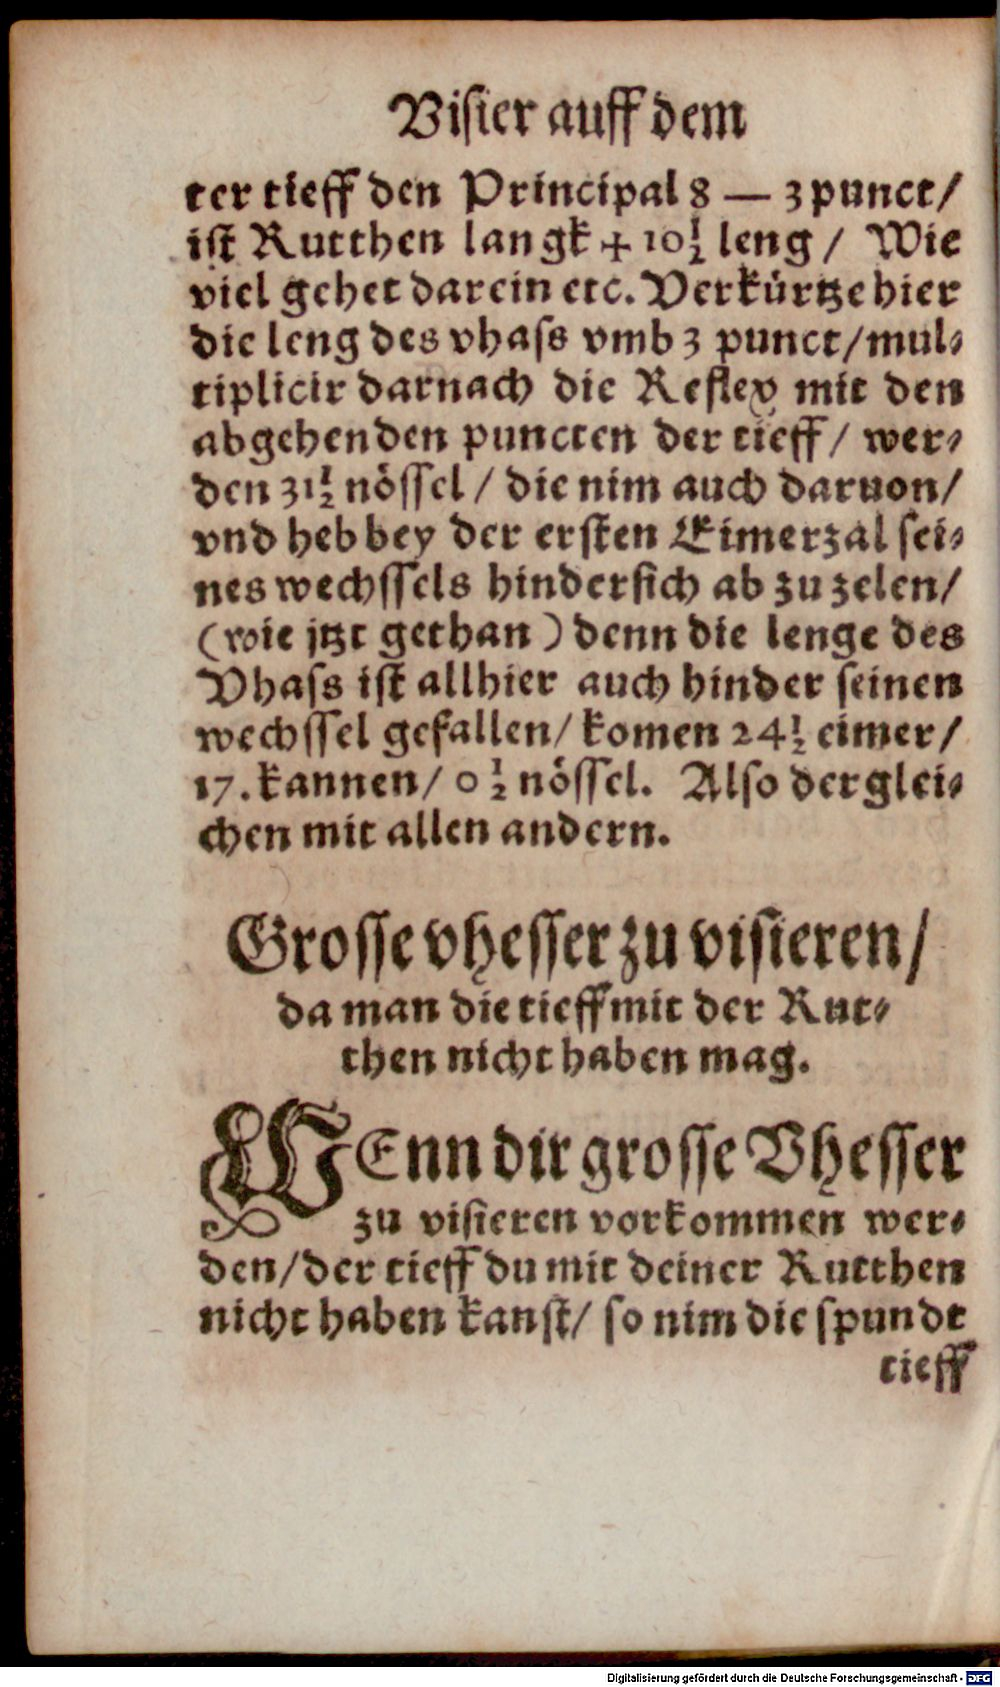 Visier auff dem
ter tieff den Principal 8 — 3 punct/
ist Rutthen langk + 10½ leng / Wie
viel gehet darein etc. Verkürtze hier
die leng des vhass vmb 3 punct/mul-
tiplicir darnach die Reflex mit den
abgehenden puncten der tieff / wer-
den 31½ nössel / die nim auch daruon/
vnd heb bey der ersten Eimerzal sei-
nes wechssels hindersich ab zu zelen/
(wie jtzt gethan) denn die lenge des
Vhass ist allhier auch hinder seinen
wechssel gefallen/ komen 24½ eimer/
17. kannen/ 0½ nössel. Also derglei-
chen mit allen andern.
Grosse vhesser zu visieren/
da man die tieff mit der Rut-
then nicht haben mag.
WEnn dir grosse Vhesser
zu visieren vorkommen wer-
den/der tieff du mit deiner Rutthen
nicht haben kanst/ so nim die spundt
tieff
Digitalisierung gefördert durch die Deutsche Forschungsgemeinschaft - DFG